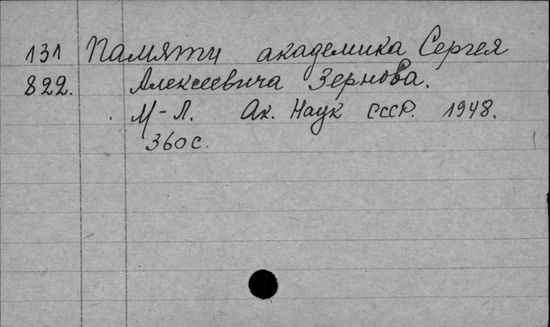 131 Памяти академика Сергея
822. Алексеевича Зернова.
М-Л. Ак. Наук СССР. 1948.
360с.